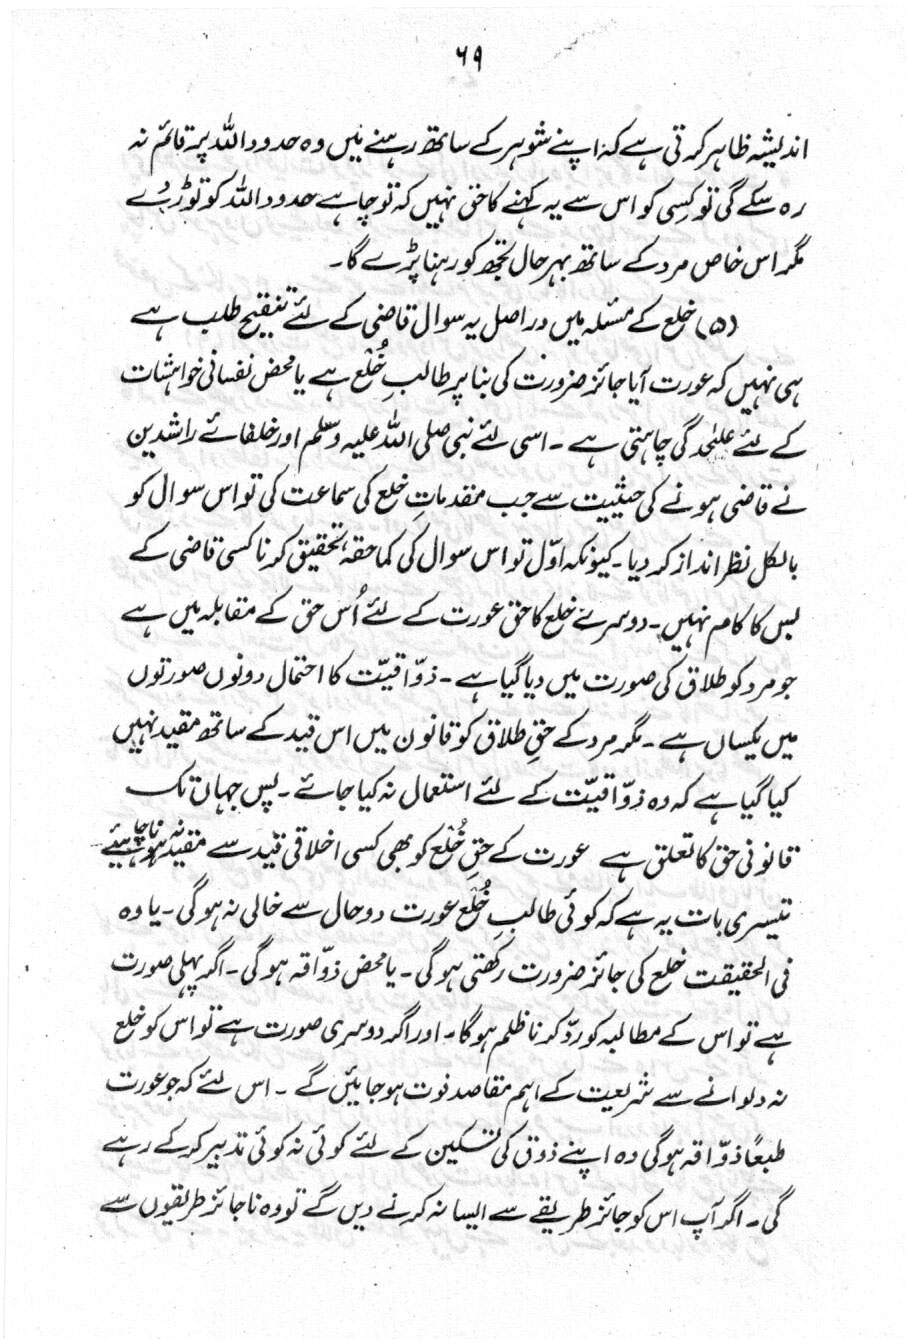 ۶۹
اندیشہ ظاہر کرتی ہے کہ اپنے شوہر کے ساتھ رہنے میں وہ حدود اللہ پر قائم نہ
رہ سکے گی تو کسی کو اس سے یہ کہنے کا حق نہیں کہ تو چاہے حدود اللہ کو توڑ دے
مگر اس خاص مرد کے ساتھ بہر حال تجھ کو رہنا پڑے گا۔
(۵) خلع کے مسئلہ میں دراصل یہ سوال قاضی کے لئے تنقیح طلب ہے
ہی نہیں کہ عورت آیا جائز ضرورت کی بنا پر طالبِ خُلع ہے یا محض نفسانی خواہشات
کے لئے علیٰحدگی چاہتی ہے۔ اسی لئے نبی صلی اللہ علیہ وسلم اور خلفائے راشدین
نے قاضی ہونے کی حیثیت سے جب مقدماتِ خلع کی سماعت کی تو اس سوال کو
بالکل نظر انداز کر دیا۔ کیونکہ اوّل تو اس سوال کی کما حقہٗ تحقیق کرنا کسی قاضی کے
بس کا کام نہیں۔ دوسرے خلع کا حق عورت کے لئے اُس حق کے مقابلہ میں ہے
جو مرد کو طلاق کی صورت میں دیا گیا ہے۔ ذوّاقیّت کا احتمال دونوں صورتوں
میں یکساں ہے۔ مگر مرد کے حقِ طلاق کو قانون میں اس قید کے ساتھ مقید نہیں
کیا گیا ہے کہ وہ ذوّاقیّت کے لئے استعمال نہ کیا جائے۔ پس جہاں تک
قانونی حق کا تعلق ہے عورت کے حقِ خُلع کو بھی کسی اخلاقی قید سے مقید نہ ہونا چاہیئے
تیسری بات یہ ہے کہ کوئی طالبِ خُلع عورت دو حال سے خالی نہ ہوگی۔ یا وہ
فی الحقیقت خلع کی جائز ضرورت رکھتی ہوگی۔ یا محض ذوّاقہ ہوگی۔ اگر پہلی صورت
ہے تو اس کے مطالبہ کو ردّ کرنا ظلم ہوگا۔ اور اگر دوسری صورت ہے تو اس کو خلع
نہ دلوانے سے شریعت کے اہم مقاصد فوت ہو جائیں گے۔ اس لئے کہ جو عورت
طبعاً ذوّاقہ ہوگی وہ اپنے ذوق کی تسکین کے لئے کوئی نہ کوئی تدبیر کر کے رہے
گی۔ اگر آپ اس کو جائز طریقے سے ایسا نہ کرنے دیں گے تو وہ ناجائز طریقوں سے